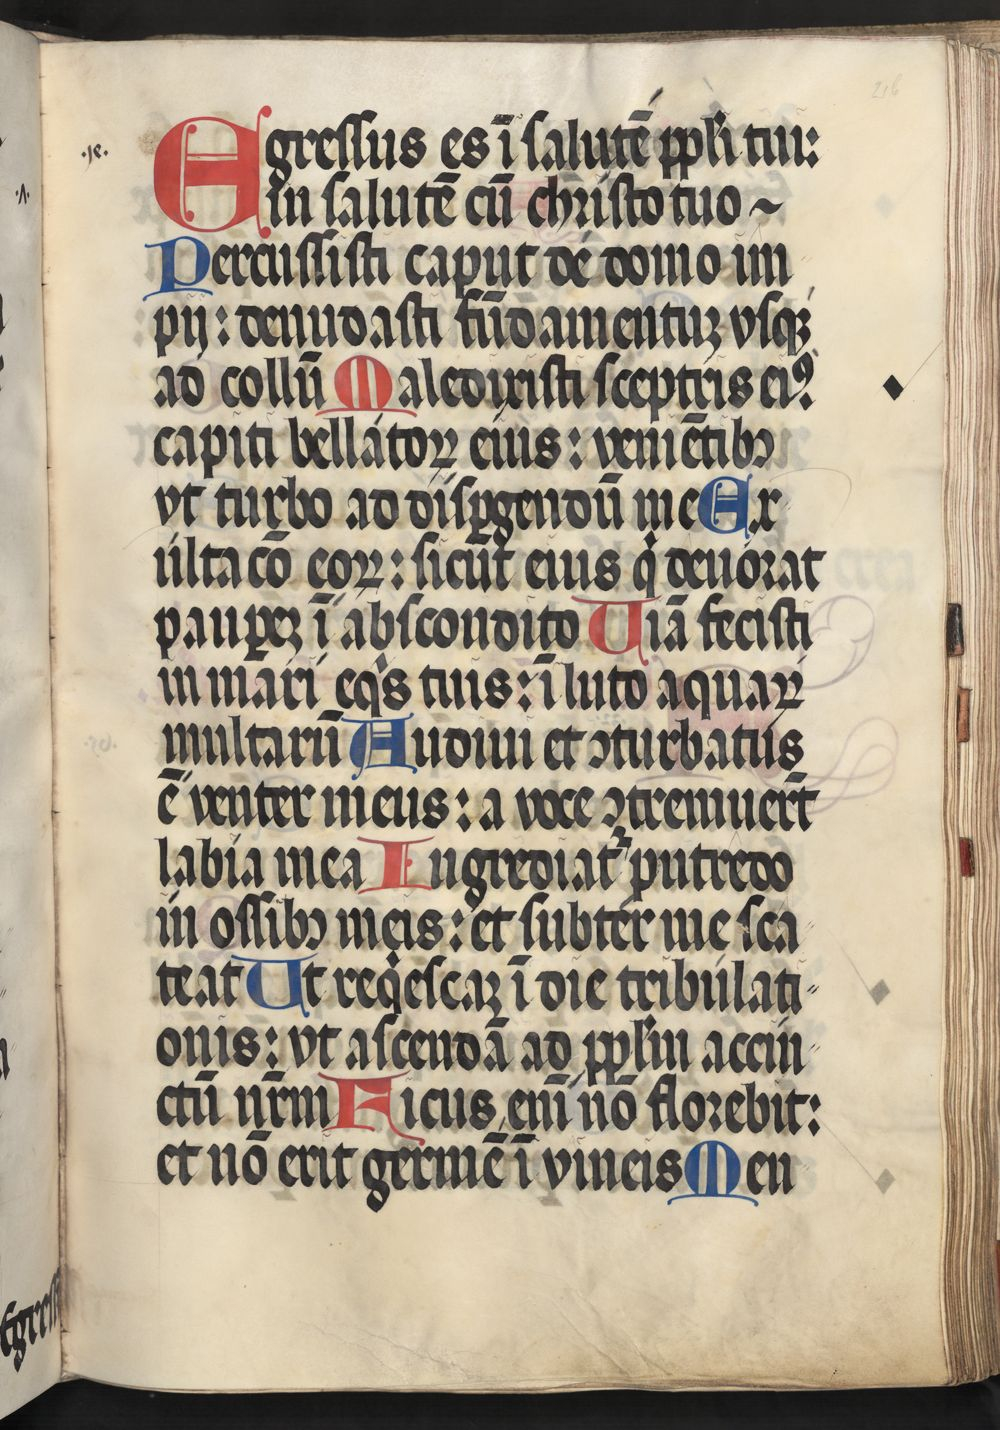 216
Egressus es ī salutē ppli tui:
in salutē cū christo tuo ~
Percussisti caput de domo im
pij: denudasti fūdamentuꝫ vsqꝫ
ad collū Maledixisti sceptris eiꝰ
capiti bellatoꝝ eius: veniētibꝰ
vt turbo ad dispgendū me Ex
ultacō eoꝝ: sicut eius q̇ deuorat
pauꝑeꝫ ī abscondito Uiā fecisti
in mari eqs tuis: ī luto aquaꝝ
multarū Audiui et ↄturbatus
ē venter meus: a voce ↄtremuerт̄
labia mea Ingrediat᷑ putredo
in ossibꝰ meis: et subter me sca
teat Ut reqescaꝫ ī die tribulati
onis: vt ascendā ad pplm accin
ctū nr̄m Ficus eni nō florebit:
et nō erit germē ī vineis Men
Egress